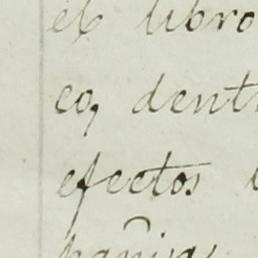 el libro
eo, dent
efectos